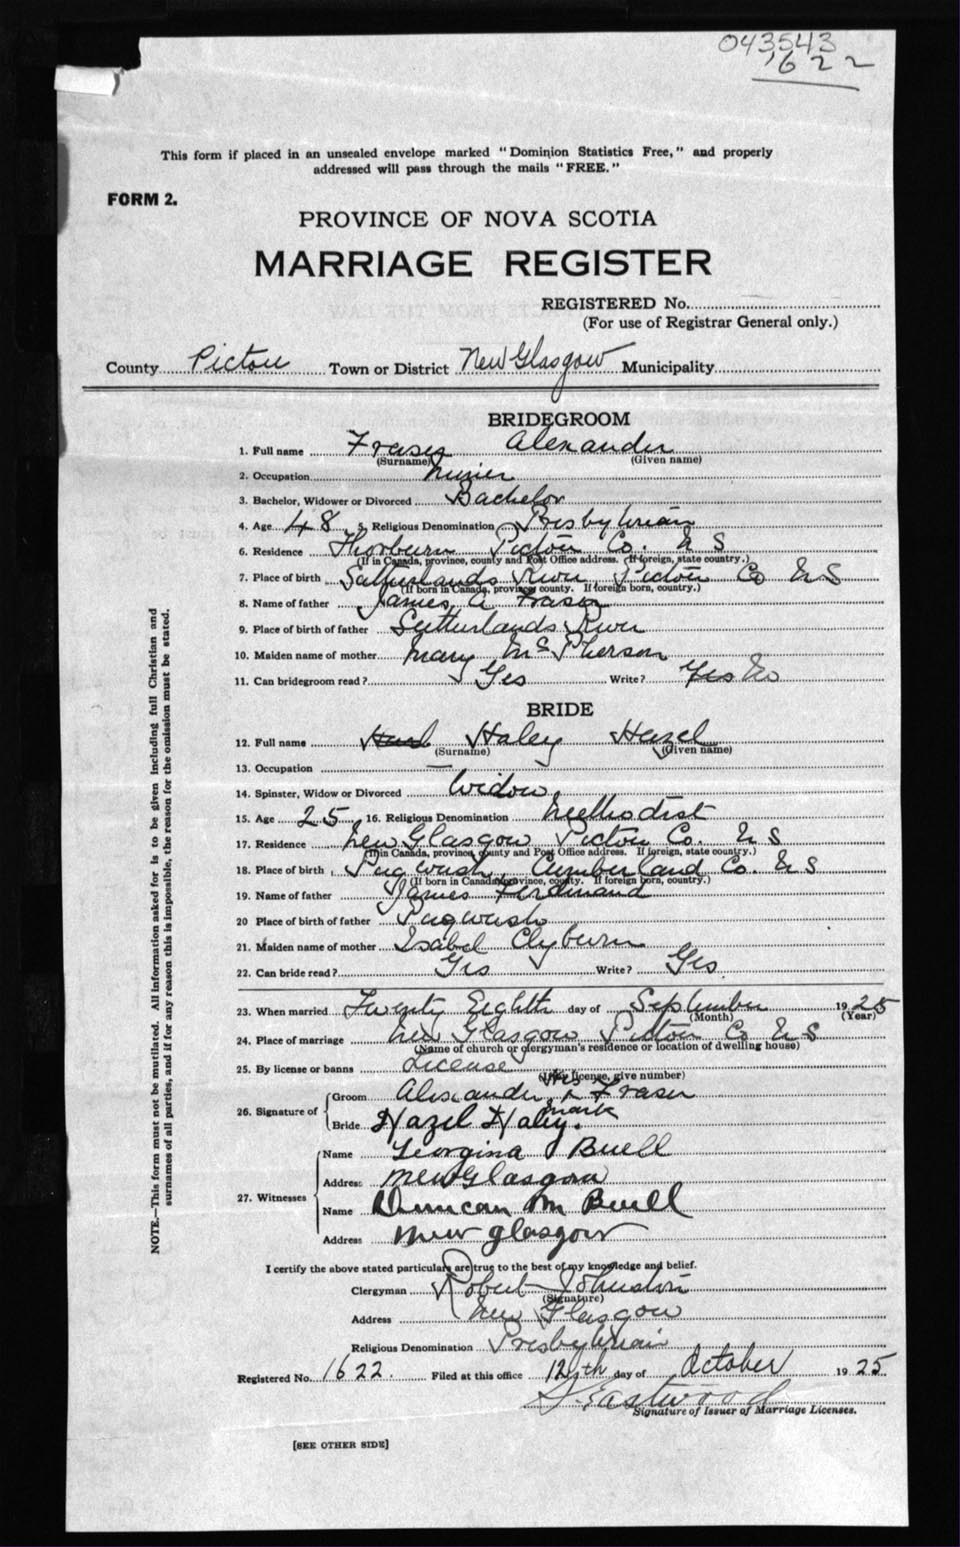 043543
1622
This form if placed in an unsealed envelope marked "Dominion Statistics Free," and properly
addressed will pass through the mails "FREE."
FORM 2.
PROVINCE OF NOVA SCOTIA
MARRIAGE REGISTER
REGISTERED No.
(For use of Registrar General only.)
County Pictou Town or District New Glasgow Municipality
BRIDEGROOM
1. Full name Fraser Alexander
(Surname) (Given name)
2. Occupation Miner
3. Bachelor, Widower or Divorced Bachelor
4. Age 48 5. Religious Denomination Presbyterian
6. Residence Thorburn Pictou Co. N S
(If in Canada, province, county and Post Office address. If foreign, state country.)
7. Place of birth Sutherlands River, Pictou Co N S
(If born in Canada, province, county. If foreign born, country.)
8. Name of father James A Fraser
9. Place of birth of father Sutherlands River
10. Maiden name of mother Mary McPherson
11. Can bridegroom read? Yes Write? Yes No
BRIDE
12. Full name Haley Hazel
(Surname) (Given name)
13. Occupation —
14. Spinster, Widow or Divorced Widow
15. Age 25 16. Religious Denomination Methodist
17. Residence New Glasgow Pictou Co. N S
(If in Canada, province, county and Post Office address. If foreign, state country.)
18. Place of birth Pugwash, Cumberland Co. N S
(If born in Canada, province, county. If foreign born, country.)
19. Name of father James Ferdinand
20 Place of birth of father Pugwash
21. Maiden name of mother Isabel Clyburn
22. Can bride read? Yes Write? Yes.
23. When married Twenty Eighth day of September 1925
(Month) (Year)
24. Place of marriage New Glasgow Pictou Co N S
(Name of church or clergyman's residence or location of dwelling house)
25. By license or banns License
(If by license, give number)
26. Signature of Groom Alexander his x mark Fraser
Bride Hazel Haley.
27. Witnesses Name Georgina Buell
Address New Glasgow
Name Duncan M Buell
Address New glasgow
I certify the above stated particulars are true to the best of my knowledge and belief.
Clergyman Robert Johnston
(Signature)
Address New Glasgow
Religious Denomination Presbyterian
Registered No. 1622. Filed at this office 12th day of October 1925
S. Eastwood
Signature of Issuer of Marriage Licenses.
[SEE OTHER SIDE]
NOTE.—This form must not be mutilated. All information asked for is to be given including full Christian and
surnames of all parties, and if for any reason this is impossible, the reason for the omission must be stated.